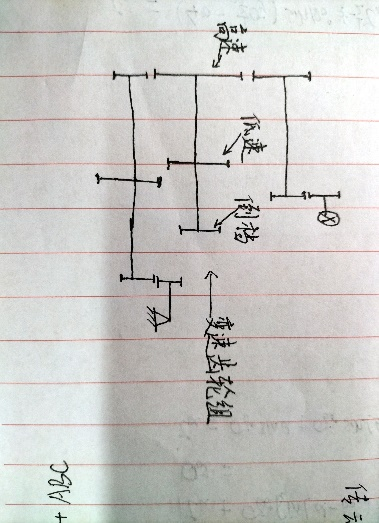 高速
低速
倒档
变速齿轮组
+ ABC